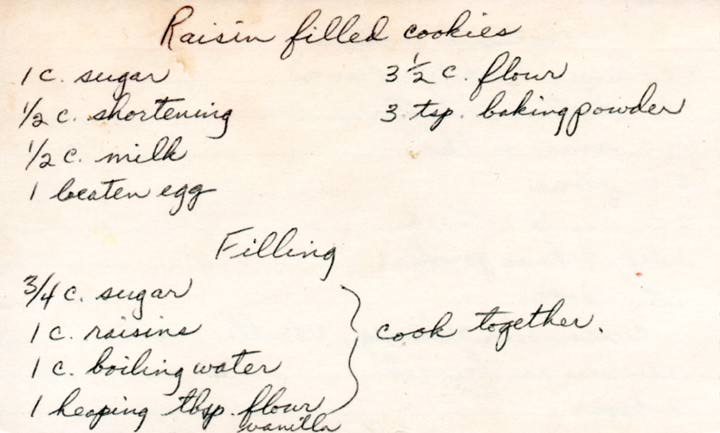 Raisin filled cookies
1 c. sugar
½ c. shortening
½ c. milk
1 beaten egg
3 ½ c. flour
3 tsp. baking powder
Filling
¾ c. sugar
1 c. raisins
1 c. boiling water
1 heaping tbsp. flour
vanilla
cook together.